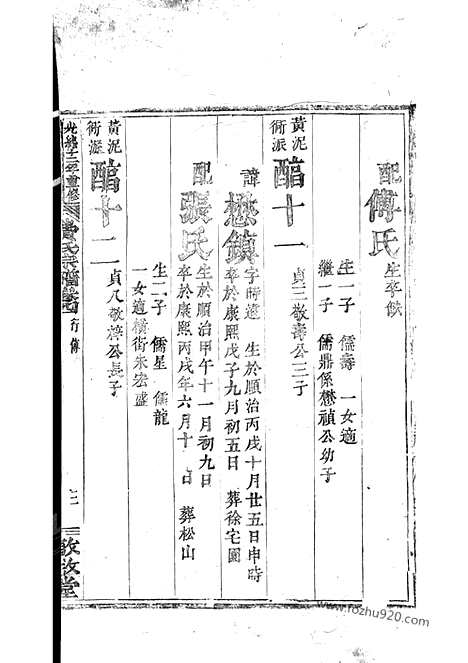 配傅氏 生卒缺
生一子 儒壽 一女適
繼一子 儒鼎係懋禎公幼子
黃泥衖派 酷十一 貞三敬壽公三子
諱懋鎮 字時遠 生於順治丙戌十月廿五日申時
卒於康熙戊子九月初五日 葬徐宅園
配張氏 生於順治甲午十一月初九日
卒於康熙丙戌年六月十日 葬松山
生二子 儒星 儒龍
一女適橫街朱宏盛
黃泥衖派 酷十二
貞八敬梓公長子
光緒十二年重修 氏宗譜 行傳
三 敦敘堂
www.rozhu920.com